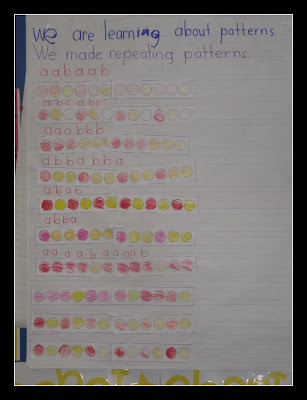 We are learning about patterns.
We made repeating patterns.
a a b a a b
a b c a b c
a a a b b b
a b b a b b a
a b a b
a b b a
a a a a b a a a a b
about